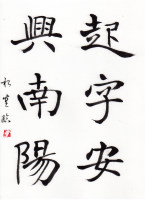 起字安
興南陽